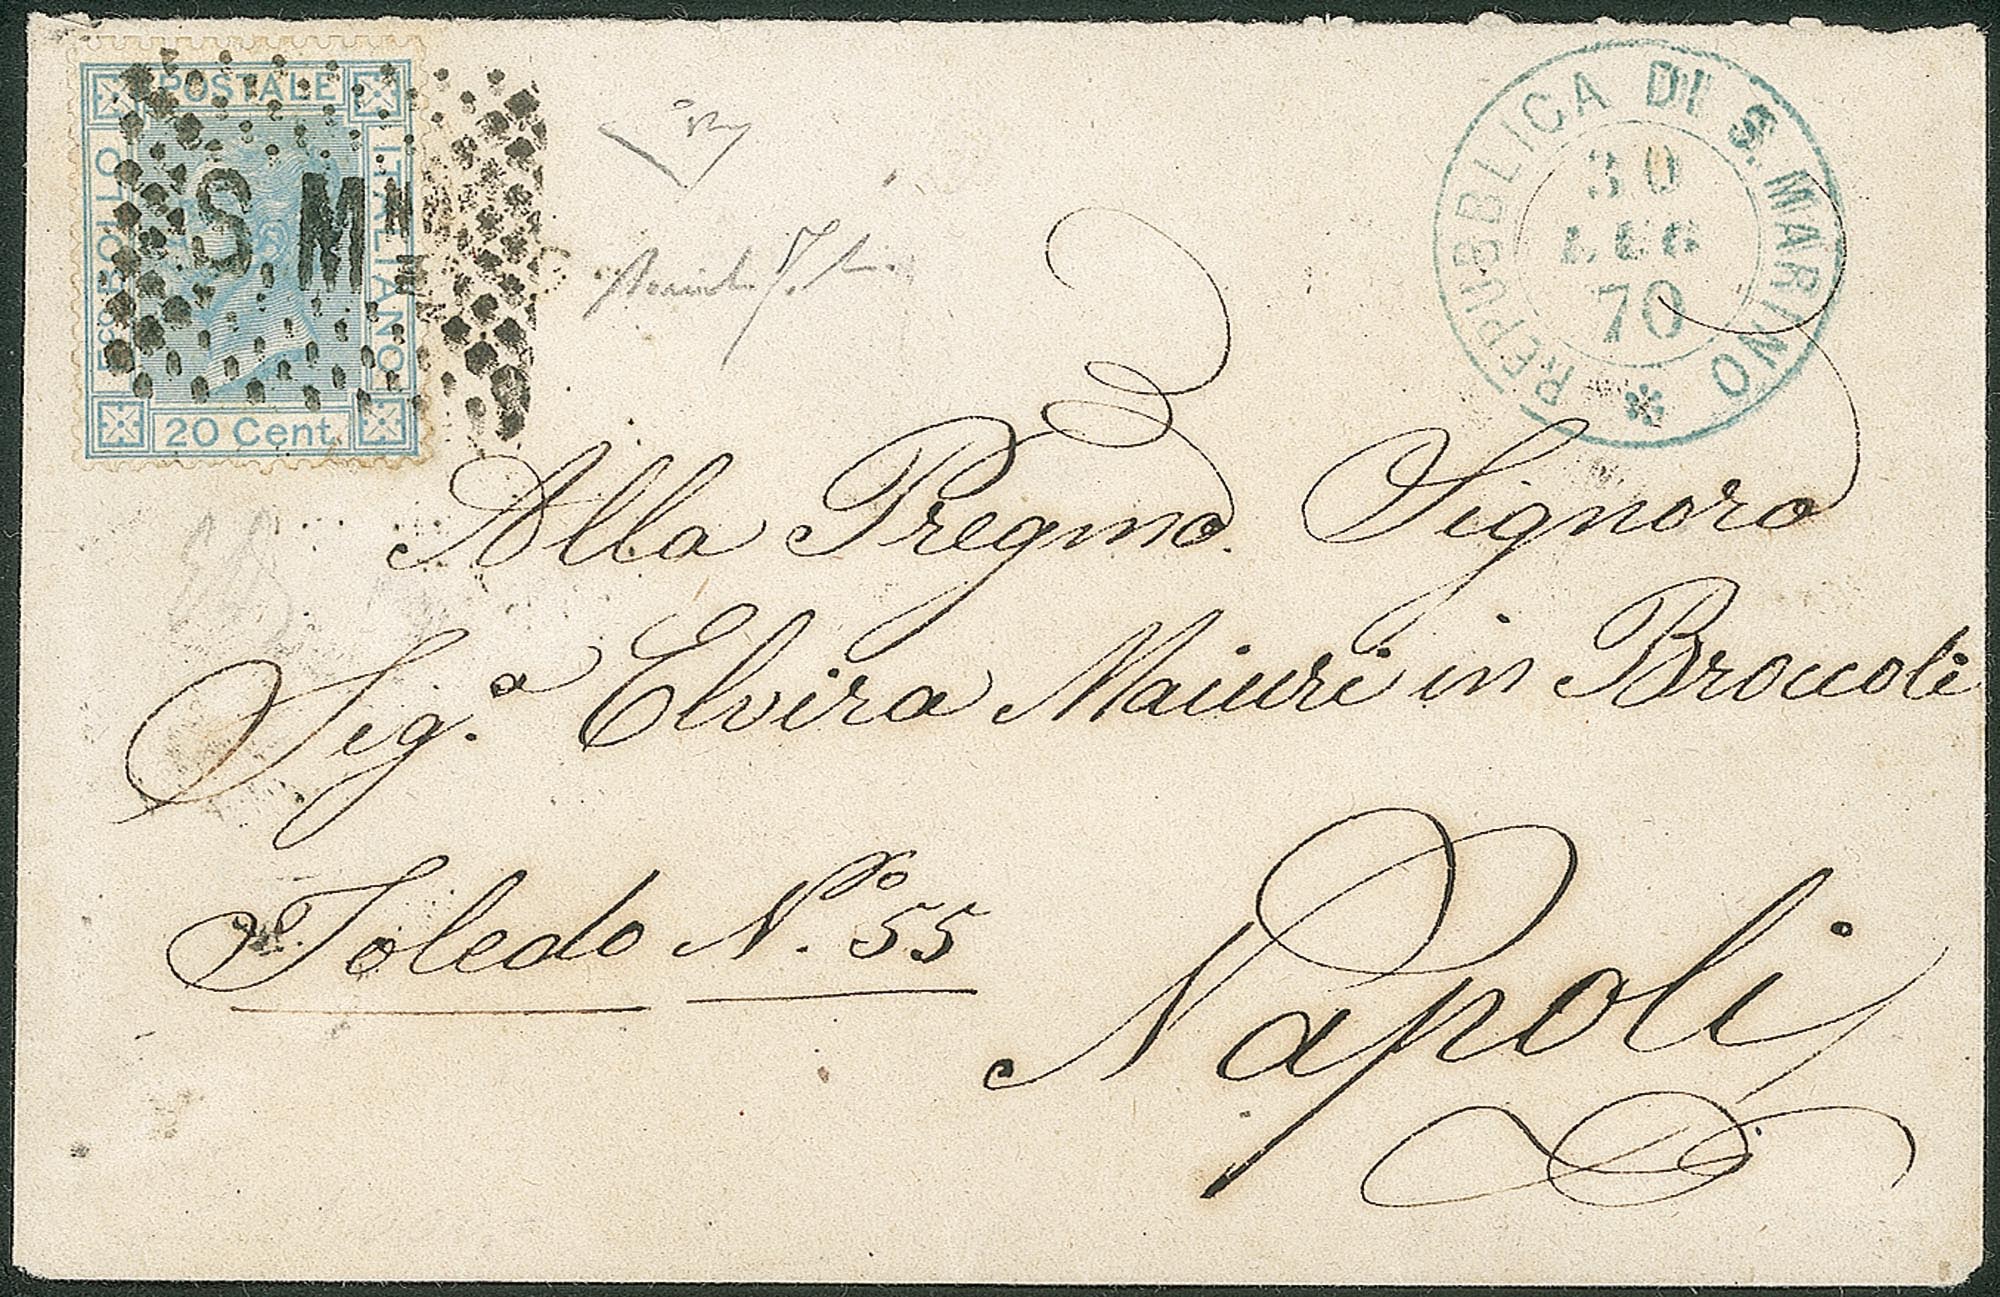 FRCOBOLLO
POSTALE
ITALIANO
20 Cent.
S. M.NO
REPUBBLICA DI S. MARINO
30
LUG
70
Alla Pregma. Signora
Sig.a Elvira Maiuri in Broccoli
Toledo No. 55
Napoli